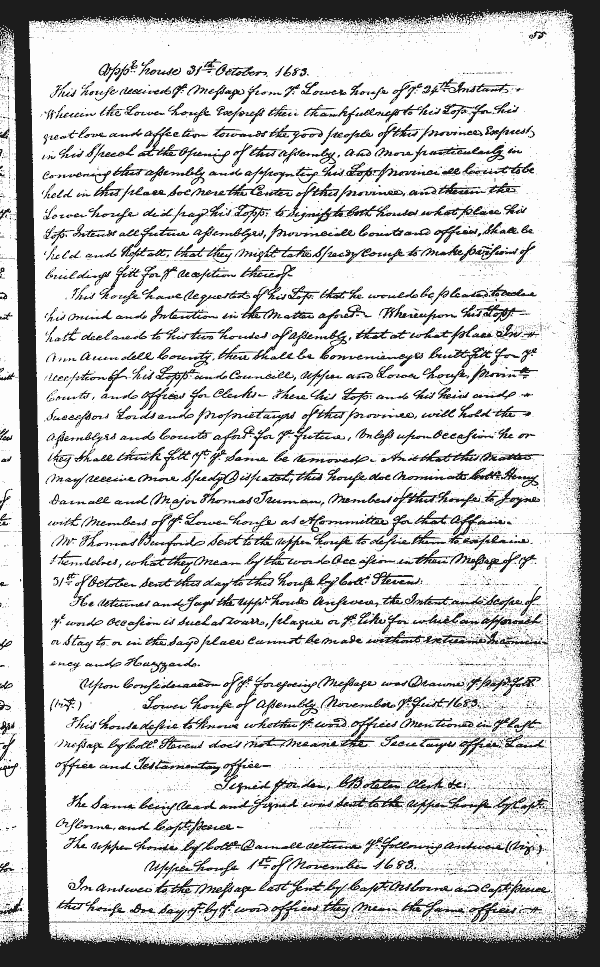 55
Upp.r house 31.th October, 1683.
This house received y.e Message from y.e Lower house of y.e 24.th Instant,
Wherein the Lower house Express their thankfullness to his Lop.s for his
great love and affection towards the good people of this province, Exprest
in his Speech at the Opening of this assembly, and more particularly in
convening this assembly and appoynting his Lop.s provinciall Court to be
held in this place soe nere the Center of this province, and therein the
Lower house did pray his Lopp.s to Signify to both houses what place his
Lop.s Intends all future assemblyes, provinciall Courts and offices, shall be
held and kept att, that they might take Speedy Course to make provisions of
buildings fitt for y.e reception thereof
This house have requested of his Lop. that he would be pleased to declare
his mind and Intention in the Matter afores.d Whereupon his Lopp.
hath declared to his two houses of assembly, that at what place In
Ann Arundell County, there shall be Conveniencyes built fit for y.e
reception of his Lopp.s and Councill, upper and Lower house, Provin.ll
Courts, and offices for Clerks. There his Lop. and his heirs and
Successors Lords and Proprietaryes of this Province, will hold the
assemblyes and Courts afors.d for y.e future, Unless upon Occasion he or
they shall think fitt y.t y.e Same be removed. And that this matter
may receive more Speedy Dispatch, this house doe nominate Coll. Henry
Darnall and Major Thomas Truman, Members of this house to Joyne
with members of y.e Lower house as A Committee for that Affaire.
M.r Thomas Burford Sent to the upper house to desire them to explaine
themselves, what they mean by the word Occasion in their Message of y.e
31.st of October sent this day to this house by Coll. Stevens.
He returnes and Says the upp.r house Answere, the Intent and Scope of
y.e word Occasion is such as warr, plague or y.e like for which an approach
or Stay to or in the sayd place cannot be made without extreame Inconveni-
ency and Hazzard.
Upon Consideracon of y.e foregoing Message was Drawne y.e
(Viz.t) Lower house of Assembly November y.e first 1683.
This house desire to know whether y.e word offices mentioned in y.e last
message by Coll. Stevens does not meane the Secretaryes office Land
office and Testamentary office
Signed p order, Boteler Clerk &c.
The Same being read and Signed was sent to the upper house by Capt.
Osborne, and Capt. Peerce
The upper house by Coll. Darnall returne y.e following answere (Viz.t)
Upper house 1.st of November 1683.
In Answer to the Message last sent by Capt. Osborne and Capt. Peerce
this house Doe Say, y.t by y.e word offices they mean the Same offices